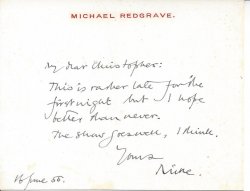 MICHAEL REDGRAVE.
My dear Christopher:
This is rather late for the
first night but I hope
better than never.
The show goes well, I think.
Yours
Mike.
16 June 66.